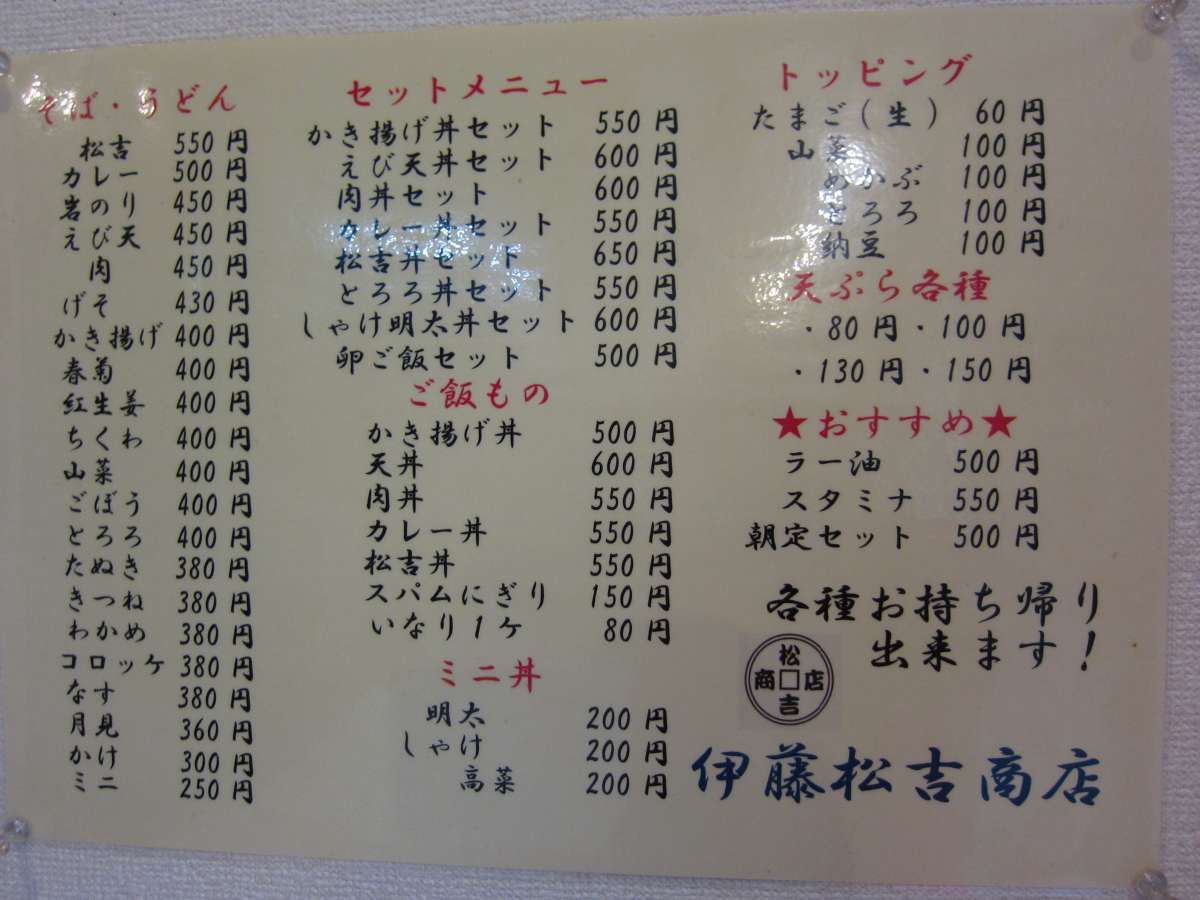 そば・うどん
松吉 550円
カレー 500円
岩のり 450円
えび天 450円
肉 450円
げそ 430円
かき揚げ 400円
春菊 400円
紅生姜 400円
ちくわ 400円
山菜 400円
ごぼう 400円
とろろ 400円
たぬき 380円
きつね 380円
わかめ 380円
コロッケ 380円
なす 380円
月見 360円
かけ 300円
ミニ 250円
セットメニュー
かき揚げ丼セット 550円
えび天丼セット 600円
肉丼セット 600円
カレー丼セット 550円
松吉丼セット 650円
とろろ丼セット 550円
しゃけ明太丼セット 600円
卵ご飯セット 500円
ご飯もの
かき揚げ丼 500円
天丼 600円
肉丼 550円
カレー丼 550円
松吉丼 550円
スパムにぎり 150円
いなり1ヶ 80円
ミニ丼
明太 200円
しゃけ 200円
高菜 200円
トッピング
たまご(生) 60円
山菜 100円
めかぶ 100円
とろろ 100円
納豆 100円
天ぷら各種
・80円・100円
・130円・150円
★おすすめ★
ラー油 500円
スタミナ 550円
朝定セット 500円
各種お持ち帰り
出来ます!
松
商□店
吉
伊藤松吉商店